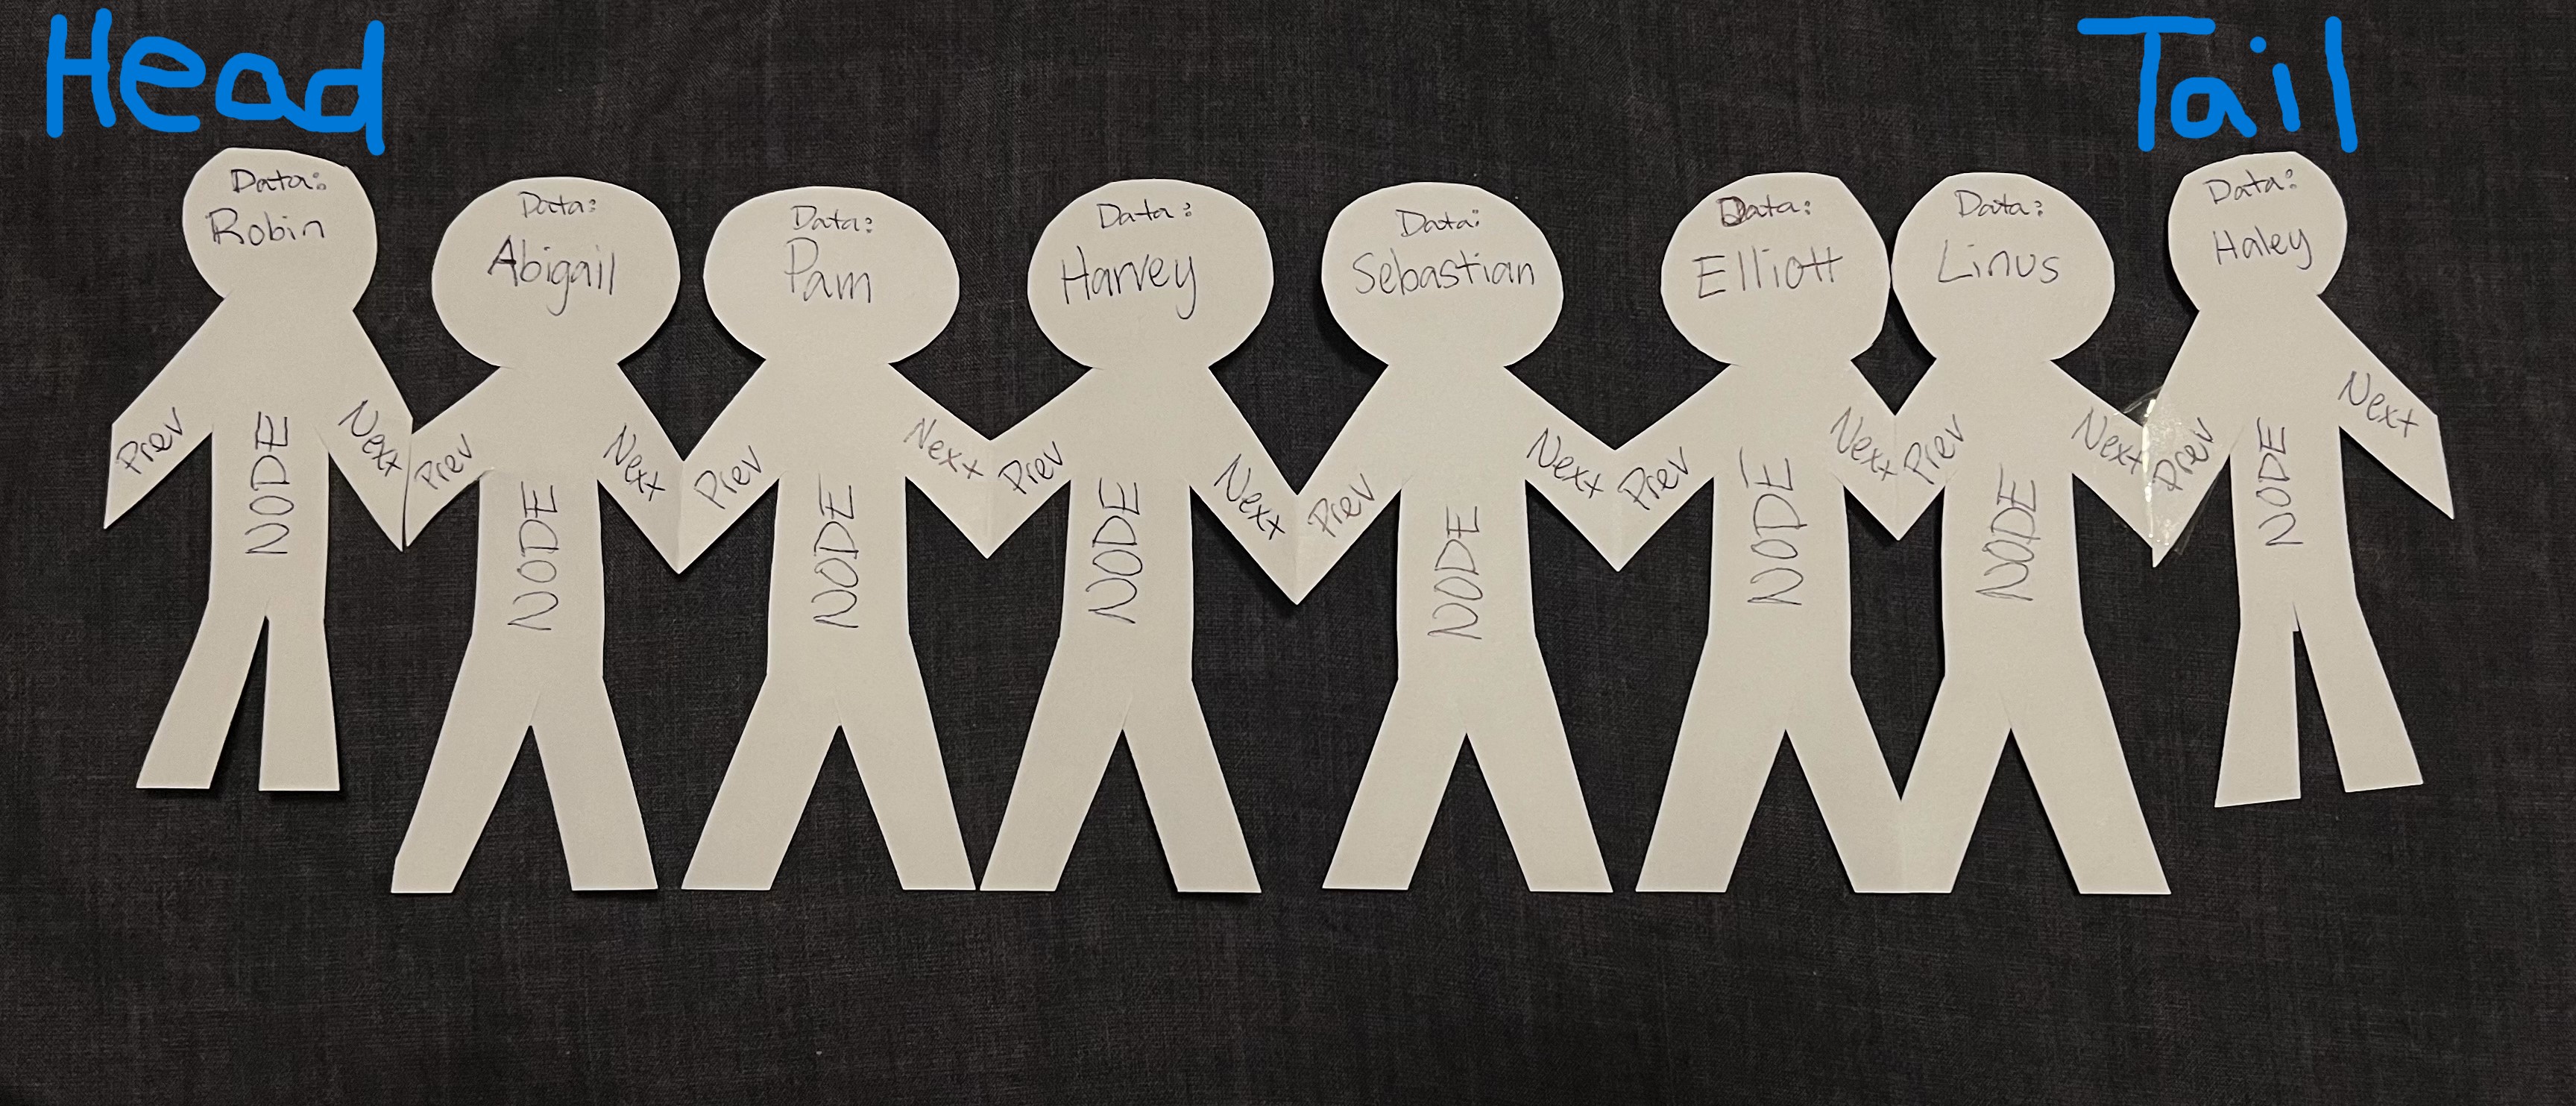 Head
Tail
Data:
Robin
Prev
NODE
Next
Data:
Abigail
Prev
NODE
Next
Data:
Pam
Prev
NODE
Next
Data:
Harvey
Prev
NODE
Next
Data:
Sebastian
Prev
NODE
Next
Data:
Elliott
Prev
NODE
Next
Data:
Linus
Prev
NODE
Next
Data:
Haley
Prev
NODE
Next